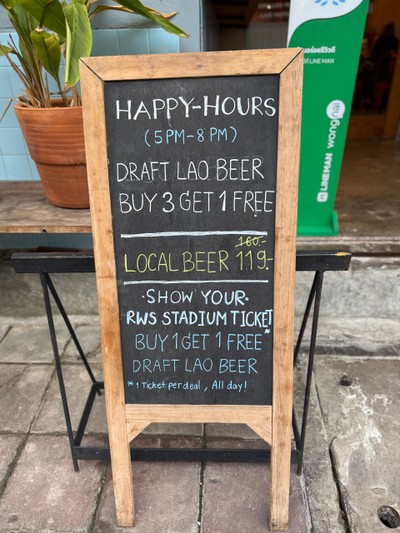 HAPPY-HOURS
(5PM-8PM)
DRAFT LAO BEER
BUY 3 GET 1 FREE
160.-
LOCAL BEER 119.-
·SHOW YOUR·
RWS STADIUM TICKET
BUY 1 GET 1 FREE*
DRAFT LAO BEER
*1 Ticket per deal, All day!
LINE MAN
LINEMAN wongnai